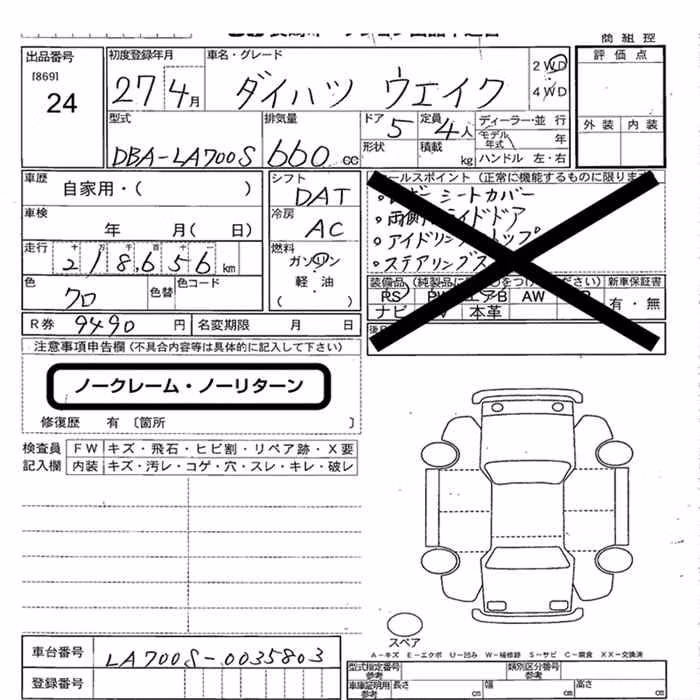 商 組 控
出品番号
[869]
24
初度登録年月
27年4月
車名・グレード
ダイハツ ウエイク
2WD
4WD
評 価 点
外 装 内 装
型式
DBA-LA700S
排気量
660 cc
ドア
5
定員
4人
形状
積載
kg
ディーラー・並 行
モデル年式 年
ハンドル 左・右
車歴
自家用・( )
車検
年 月( 日)
走行
十 万 千 百 十 一
218,656 km
色
クロ
色替
色コード
シフト
DAT
冷房
AC
燃料
ガソリン
軽 油
( )
セールスポイント (正常に機能するものに限ります
シートカバー
両側 ライドドア
アイドリング トップ
ステアリングス
装備品 (純製品に をつけ ださい)
新車保証書
RS PW エアB AW
ナビ 本革
有・無
R券 9490 円
名変期限 月 日
注意事項申告欄 (不具合内容等は具体的に記入して下さい)
ノークレーム・ノーリターン
修復歴 有 〔箇所 〕
検査員
記入欄
FW キズ・飛石・ヒビ割・リペア跡・X要
内装 キズ・汚レ・コゲ・穴・スレ・キレ・破レ
スペア
A－キズ E－エクボ U－凹み W－補修跡 S－サビ C－腐食 XX－交換済
車台番号
LA700S-0035803
登録番号
型式指定番号
参考
類別区分番号
参考
車庫証明用
参考
長さ cm 幅 cm 高さ cm